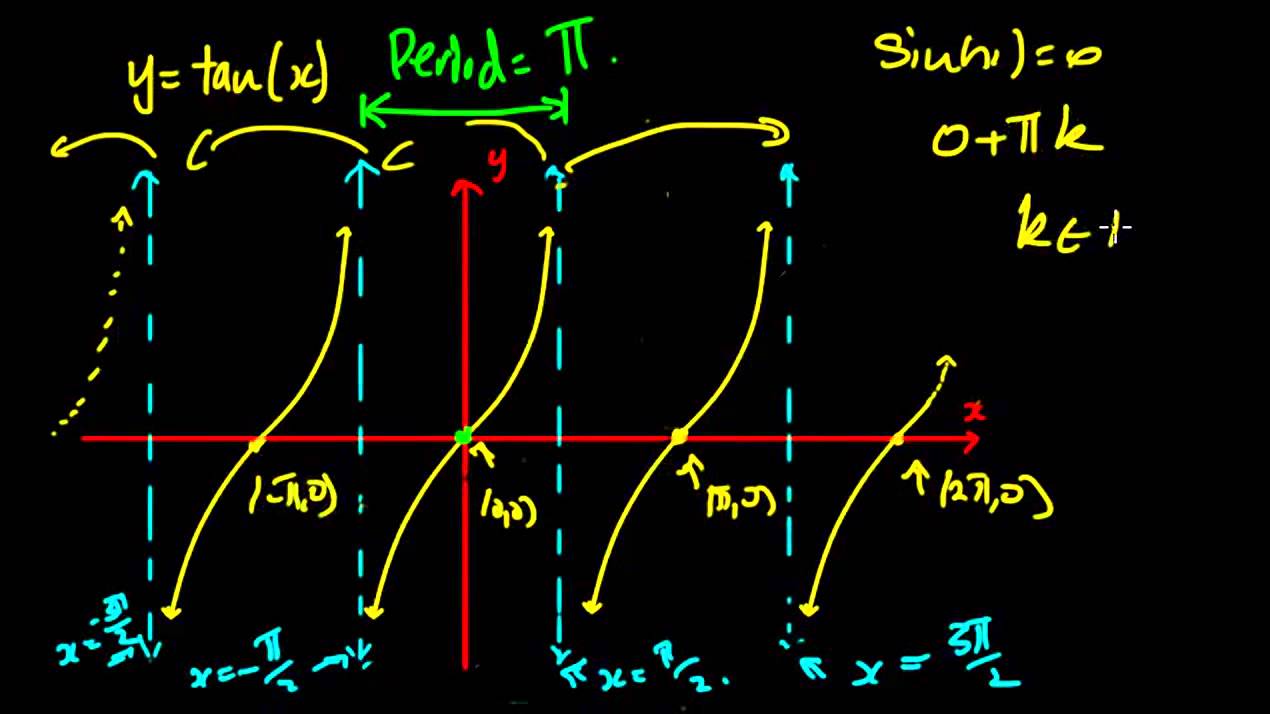 y = tan(x)
Period = π.
sin(x) = 0
0 + πk
k ∈
y
x
(-π,0)
(0,0)
(π,0)
(2π,0)
x = -3π/2
x = -π/2
x = π/2.
x = 3π/2